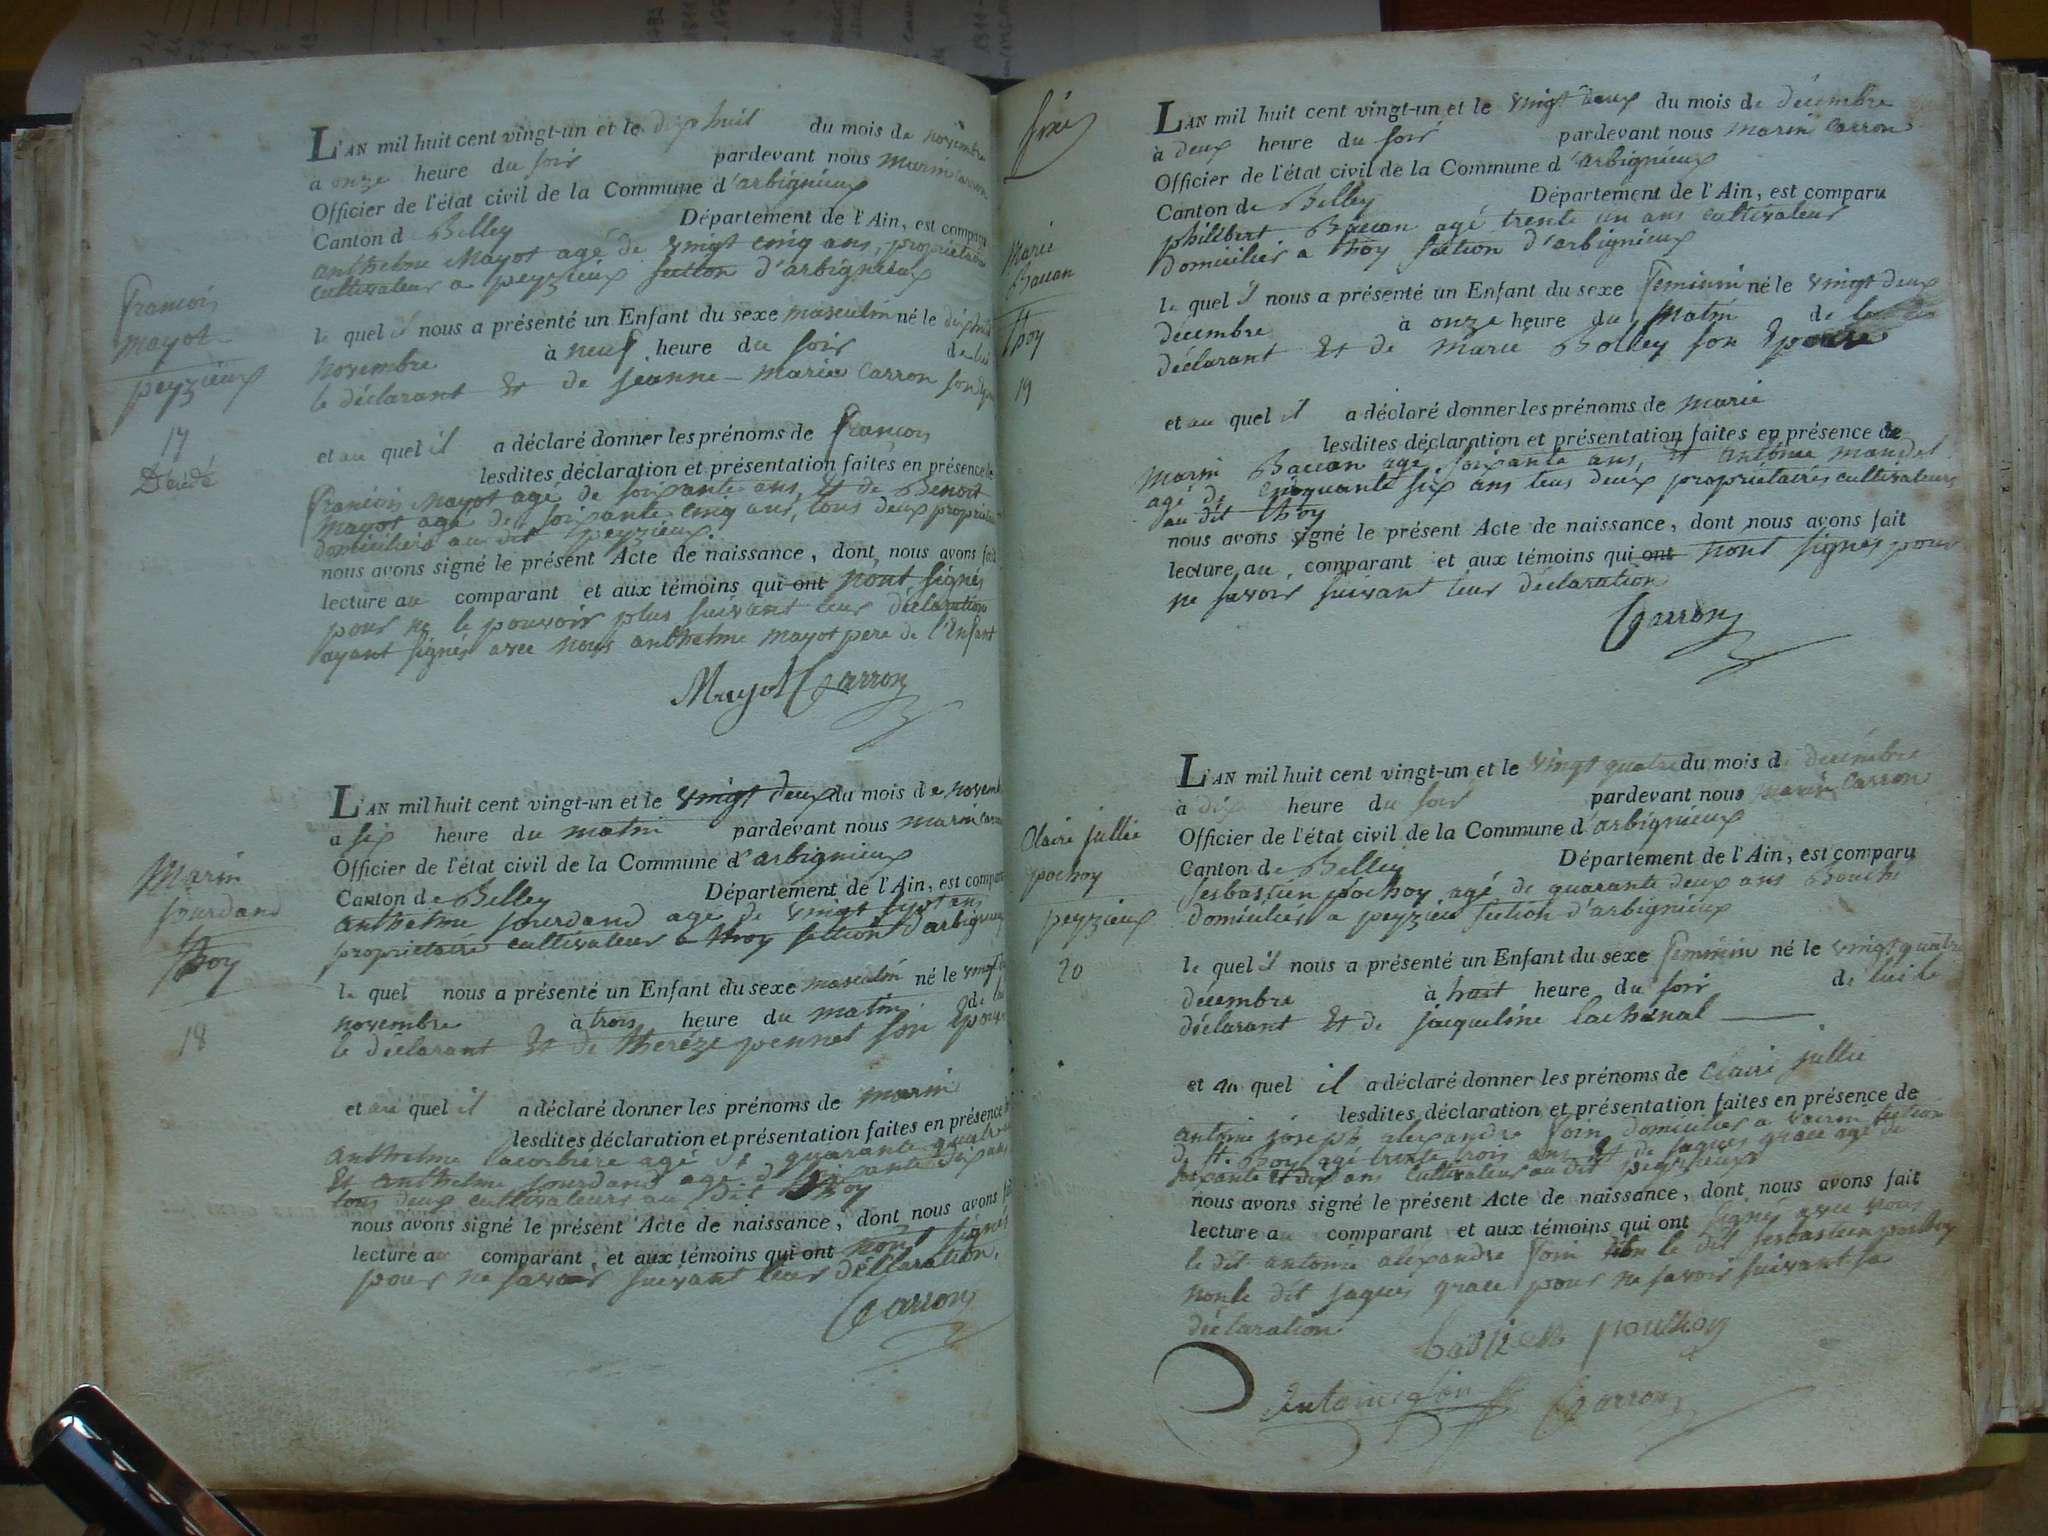 François
mayot
peyzieux
17
Décédé
L'AN mil huit cent vingt-un et le dix huit du mois de novembre
a onze heure du soir pardevant nous marin Carron
Officier de l'état civil de la Commune d'arbignieux
Canton d Belley Département de l'Ain, est comparu
anthelme Mayot agé de vingt cinq ans, propriétaire
cultivateur a peyzieux section d'arbignieux
le quel il nous a présenté un Enfant du sexe masculin né le dix huit
novembre à neuf heure du soir de lui
le déclarant Et de jeanne-marie Carron son
et au quel il a déclaré donner les prénoms de françois
lesdites déclaration et présentation faites en présence de
françois Mayot age de soixante ans, Et de Benoit
mayot agé de soixante cinq ans, tous deux
domiciliés au dit peyzieux
nous avons signé le présent Acte de naissance, dont nous avons fait
lecture au comparant et aux témoins qui ont nont signés
pour ne le pouvoir plus suivant leur déclaration
ayant signés avec nous anthelme mayot pere de l'Enfant
Mayot Carron
Marin
jourdand
St
hoy
18
L'AN mil huit cent vingt-un et le vingt deux du mois de novemb
a six heure du matin pardevant nous marin
Officier de l'état civil de la Commune d'arbignieux
Canton de Belley Département de l'Ain, est comparu
anthelme jourdand age de vingt sept ans
propriétaire cultivateur a thoy section d'arbignieux
le quel nous a présenté un Enfant du sexe masculin né le vingt
novembre à trois heure du matin de lui
le déclarant Et de thereze pennet son Epouse
et au quel il a déclaré donner les prénoms de marin
lesdites déclaration et présentation faites en présence
anthelme lacorbiere agé quarante quatre
Et anthelme jourdand age d soixante dix ans
tous deux cultivateurs au dit thoy
nous avons signé le présent Acte de naissance, dont nous avons fait
lecture au comparant et aux témoins qui ont nont signés
pour ne savoir suivant leur déclaration.
Carron
Marie
Baccon
St
hoy
19
L'AN mil huit cent vingt-un et le vingt deux du mois de décembre
à deux heure du soir pardevant nous marin Carron
Officier de l'état civil de la Commune d'arbignieux
Canton de Belley Département de l'Ain, est comparu
philibert Baccon agé trente un ans cultivateur
domiciliés a thoy section d'arbignieux
le quel il nous a présenté un Enfant du sexe feminin né le vingt deux
décembre à onze heure du matin de
déclarant Et de Marie Bolley son Epouse
et au quel il a déclaré donner les prénoms de marie
lesdites déclaration et présentation faites en présence de
Marin Baccon agé soixante ans, et antoine
agé de cinquante six ans tous deux propriétaires cultivateurs
au dit thoy
nous avons signé le présent Acte de naissance, dont nous avons fait
lecture au comparant et aux témoins qui ont nont signés pour
ne savoir suivant leur déclaration
Carron
Claire jullie
pochoy
peyzieux
20
L'AN mil huit cent vingt-un et le vingt quatre du mois d décembre
à dix heure du soir pardevant nous marin Carron
Officier de l'état civil de la Commune d'arbignieux
Canton de Belley Département de l'Ain, est comparu
sesbastien pochoy agé de quarante deux ans
domiciliés a peyzieu section d'arbignieux
le quel il nous a présenté un Enfant du sexe feminin né le vingt quatre
décembre à huit heure du soir de lui le
déclarant Et de jaqueline lachenal
et au quel il a déclaré donner les prénoms de Claire jullie
lesdites déclaration et présentation faites en présence de
antoine joseph alexandre domiciliés a section
de St. hoy agé trente trois ans Et de jaques grace agé de
soixante et dix ans cultivateur au dit peyzieux
nous avons signé le présent Acte de naissance, dont nous avons fait
lecture au comparant et aux témoins qui ont signés avec nous
le dit antoine alexandre le dit sesbastien pochoy
non le dit jaques grace pour ne savoir suivant sa
déclaration
Carron